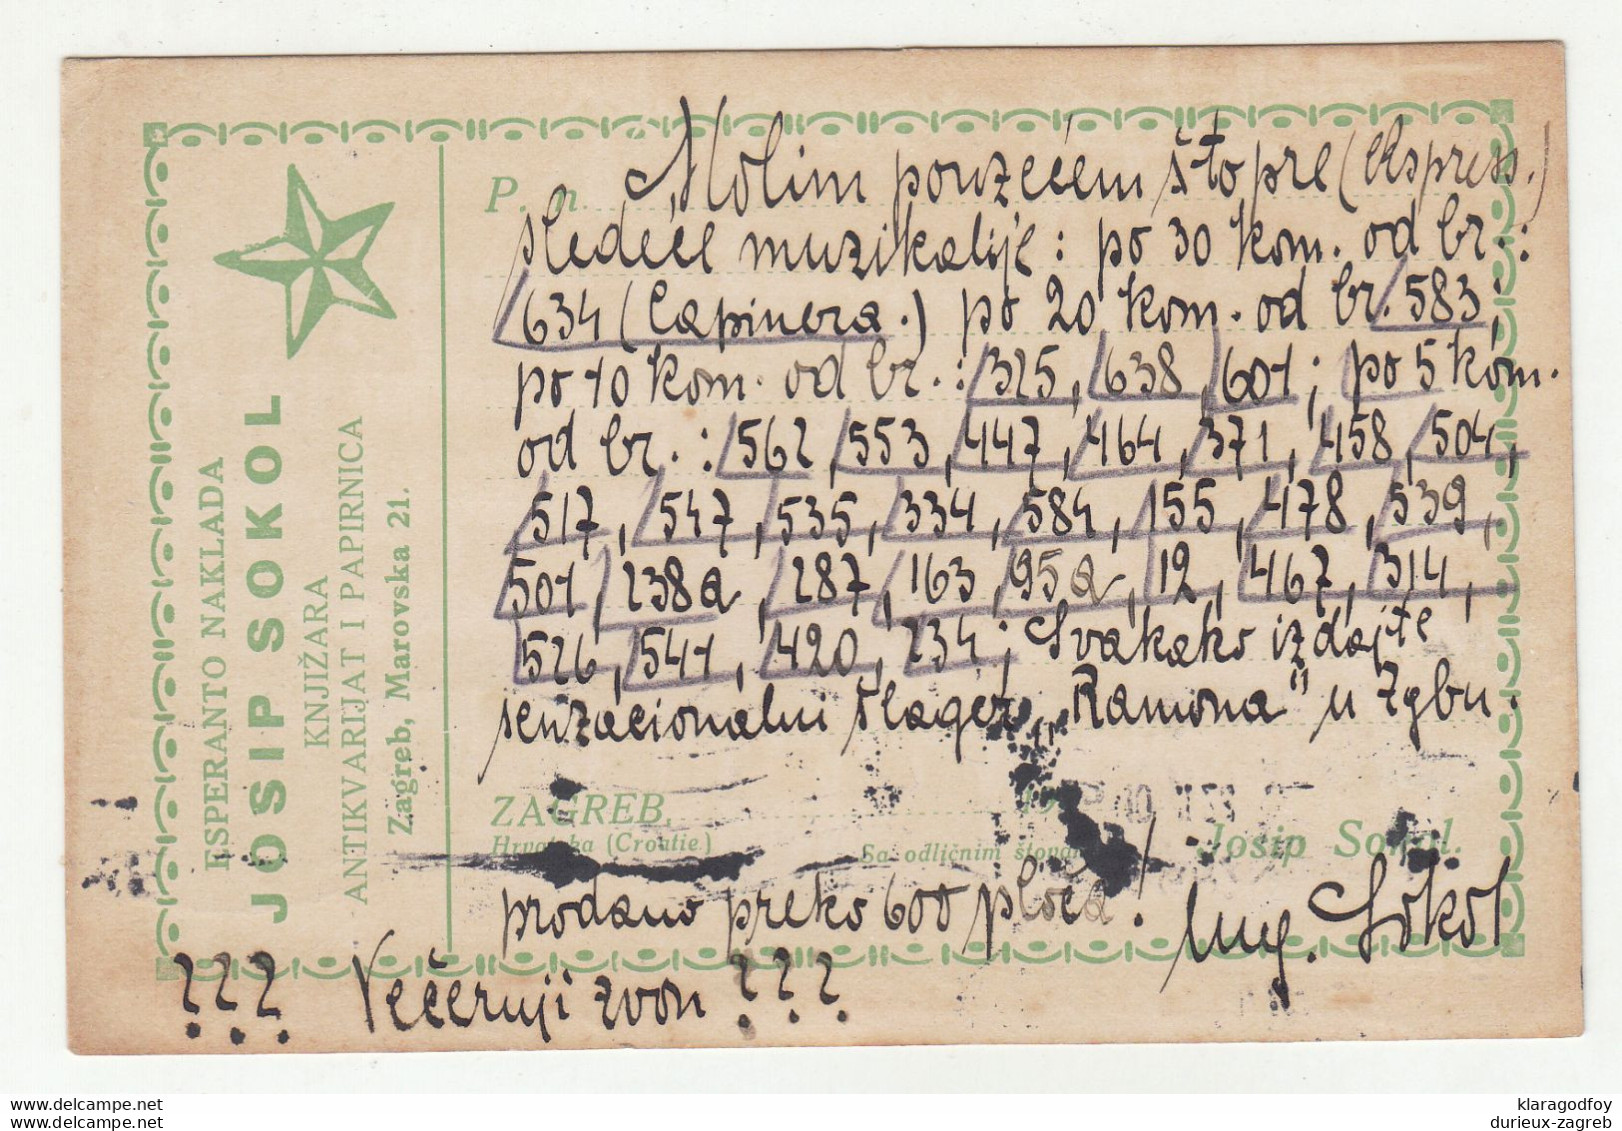 ESPERANTO NAKLADA
JOSIP SOKOL
KNJIŽARA
ANTIKVARIJAT I PAPIRNICA
Zagreb, Marovska 21.
P. n. Molim pouzećem što pre (ekspress.)
sledeće muzikalije: po 30 kom. od br.:
634 (Capinera.) po 20 kom. od br. 583;
po 10 kom. od br.: 325, 638, 601; po 5 kom.
od br.: 562, 553, 447, 464, 371, 458, 504,
517, 547, 535, 334, 584, 155, 478, 539,
501, 238a, 287, 163, 95a, 12, 467, 314,
526, 541, 420, 234; Svakako izdajte
senzacionalni šlager „Ramona" u Zgbu.
ZAGREB, 19
Hrvatska (Croatie)
Sa odličnim štovanjem Josip Sokol.
prodano preko 600 ploča! Sokol
??? Večernji zvon ???
www.delcampe.net
klaragodfoy
durieux-zagreb